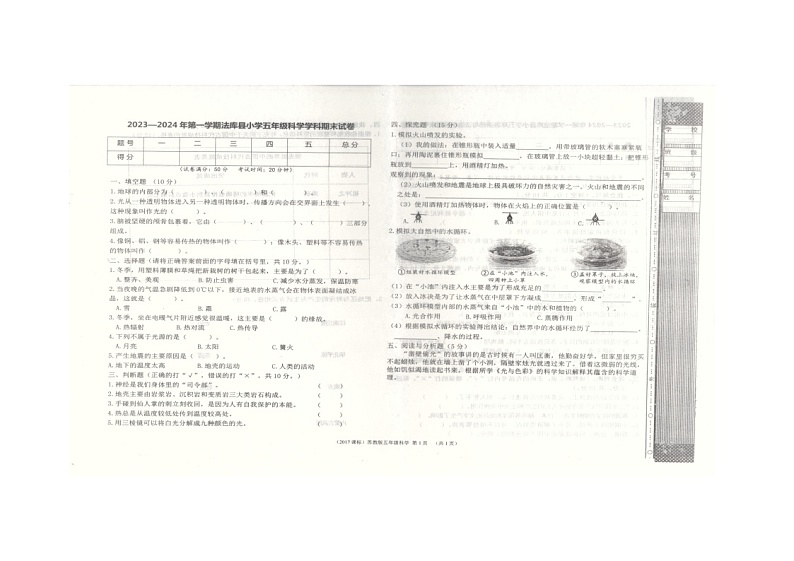 2023—2024年第一学期法库县小学五年级科学学科期末试卷
题号 一 二 三 四 五 总分
得分
（试卷满分：50分 考试时间：20分钟）
一、填空题（10分）
1.地球的内部分为（ ）、（ ）和（ ）。
2.光从一种透明物体进入另一种透明物体时，传播方向会在交界面上发生（ ），
这种现象叫作光的（ ）。
3.脑被坚硬的颅骨包裹着，它由（ ）、（ ）、（ ）三部分
组成。
4.像铜、铝、钢等容易传热的物体叫作（ ）；像木头、塑料等不容易传热
的物体叫作（ ）。
二、选择题（请将正确答案前面的字母填在括号里，共10分。）
1.冬季，用塑料薄膜和草绳把新栽树的树干包起来，主要是为了（ ）。
A.整齐、美观 B.防止虫害 C.减少水分蒸发，保温防寒
2.当夜晚的气温急剧降低到0℃以下，接近地表的水蒸气会在物体表面凝结成冰
晶，这就是（ ）。
A.雪 B.霜 C.露
3.冬季，坐在电暖气片附近感觉很温暖，这主要是（ ）的缘故。
A.热辐射 B.热对流 C.热传导
4.下列不属于光源的是（ ）。
A.月亮 B.太阳 C.萤火
5.产生地震的主要原因是（ ）。
A.地下的温度太高 B.地壳的运动 C.人类的活动
三、判断题（正确的打“√”，错误的打“×”，共10分。）
1.神经是我们身体里的“司令部”。 （ ）
2.地壳主要由岩浆岩、沉积岩和变质岩三大类岩石构成。 （ ）
3.手碰到仙人掌的刺立刻收回，是因为人有自我保护的本能。 （ ）
4.热总是从温度较低处传到温度较高处。 （ ）
5.用三棱镜可以将白光分解成九种颜色的光。 （ ）
四、探究题（15分）
1.模拟火山喷发的实验。
（1）我的做法：在锥形瓶中装入适量 ，用带玻璃管的软木塞塞紧瓶
口；再用陶泥裹住锥形瓶模拟 ，在玻璃管上放一小块超轻黏土；把锥形
瓶放到 上，用酒精灯加热。
观察到的现象：
（2）火山喷发和地震是地球上极具破坏力的自然灾害之一，火山和地震的不同
之处是：
（3）使用酒精灯加热物体时，物体在火焰上的正确位置是（ ）。
A. B. C.
2.模拟大自然中的水循环。
①组装好水循环模型
②在“小池”内注入水，四周种上小草
③盖好罩子，放上冰块，观察模型内的水循环
（1）在“小池”内注入水主要是为了形成充足的 。
（2）放入冰块是为了让水蒸气在中层罩下方凝成 ，形成“ ”。
（3）水循环模型内部的水蒸气来自“小池”中的水和植物的（ ）。
A.光合作用 B.呼吸作用 C.蒸腾作用
（4）根据模拟水循环的实验得出结论：自然界中的水循环经历了 、
、降水的过程。
五、阅读与分析题（5分）
“凿壁偷光”的故事讲的是古时候有一人叫匡衡，他勤奋好学，但家里很穷买
不起蜡烛，他就在墙上凿了个小洞，隔壁家烛光就透过来了，借着这微弱的光线，
他如饥似渴地读起书来。根据所学《光与色彩》的科学知识解释其蕴含的科学道
理。
（2017课标）苏教版五年级科学 第1页 （共1页）
学校
班级
考号
姓名